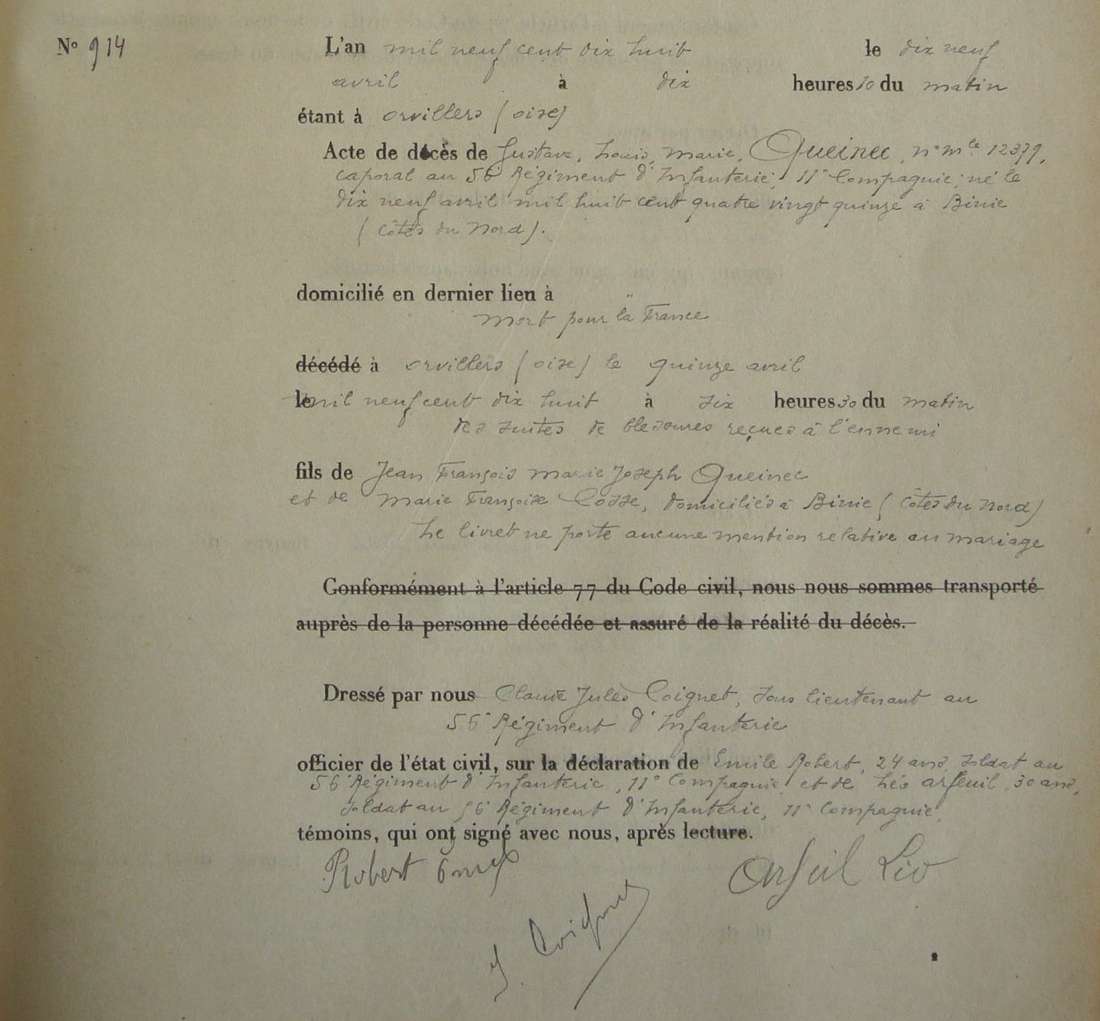 N° 914
L'an mil neuf cent dix huit le dix neuf
avril à dix heures 30 du matin
étant à orvillers (oise)
Acte de décès de Gustave, Louis, Marie, Queinec, n° mle 12379,
caporal au 56e Régiment d'Infanterie, 11e Compagnie, né le
dix neuf avril mil huit cent quatre vingt quinze à Binic
(Côtes du Nord).
domicilié en dernier lieu à "
mort pour la France
décédé à orvillers (oise) le quinze avril
le mil neuf cent dix huit à six heures 30 du matin
des suites de blessures reçues à l'ennemi
fils de Jean François Marie Joseph Queinec
et de Marie Françoise Cosse, domiciliés à Binic (Côtes du Nord)
Le livret ne porte aucune mention relative au mariage
Conformément à l'article 77 du Code civil, nous nous sommes transporté
auprès de la personne décédée et assuré de la réalité du décès.
Dressé par nous Claude Jules Coignet, sous lieutenant au
56e Régiment d'Infanterie
officier de l'état civil, sur la déclaration de Emile Robert, 24 ans, soldat au
56e Régiment d'Infanterie, 11e Compagnie et de Léo arfeuil, 30 ans,
soldat au 56e Régiment d'Infanterie, 11e Compagnie,
témoins, qui ont signé avec nous, après lecture.
Robert Arfeuil Léo
J. Coignet